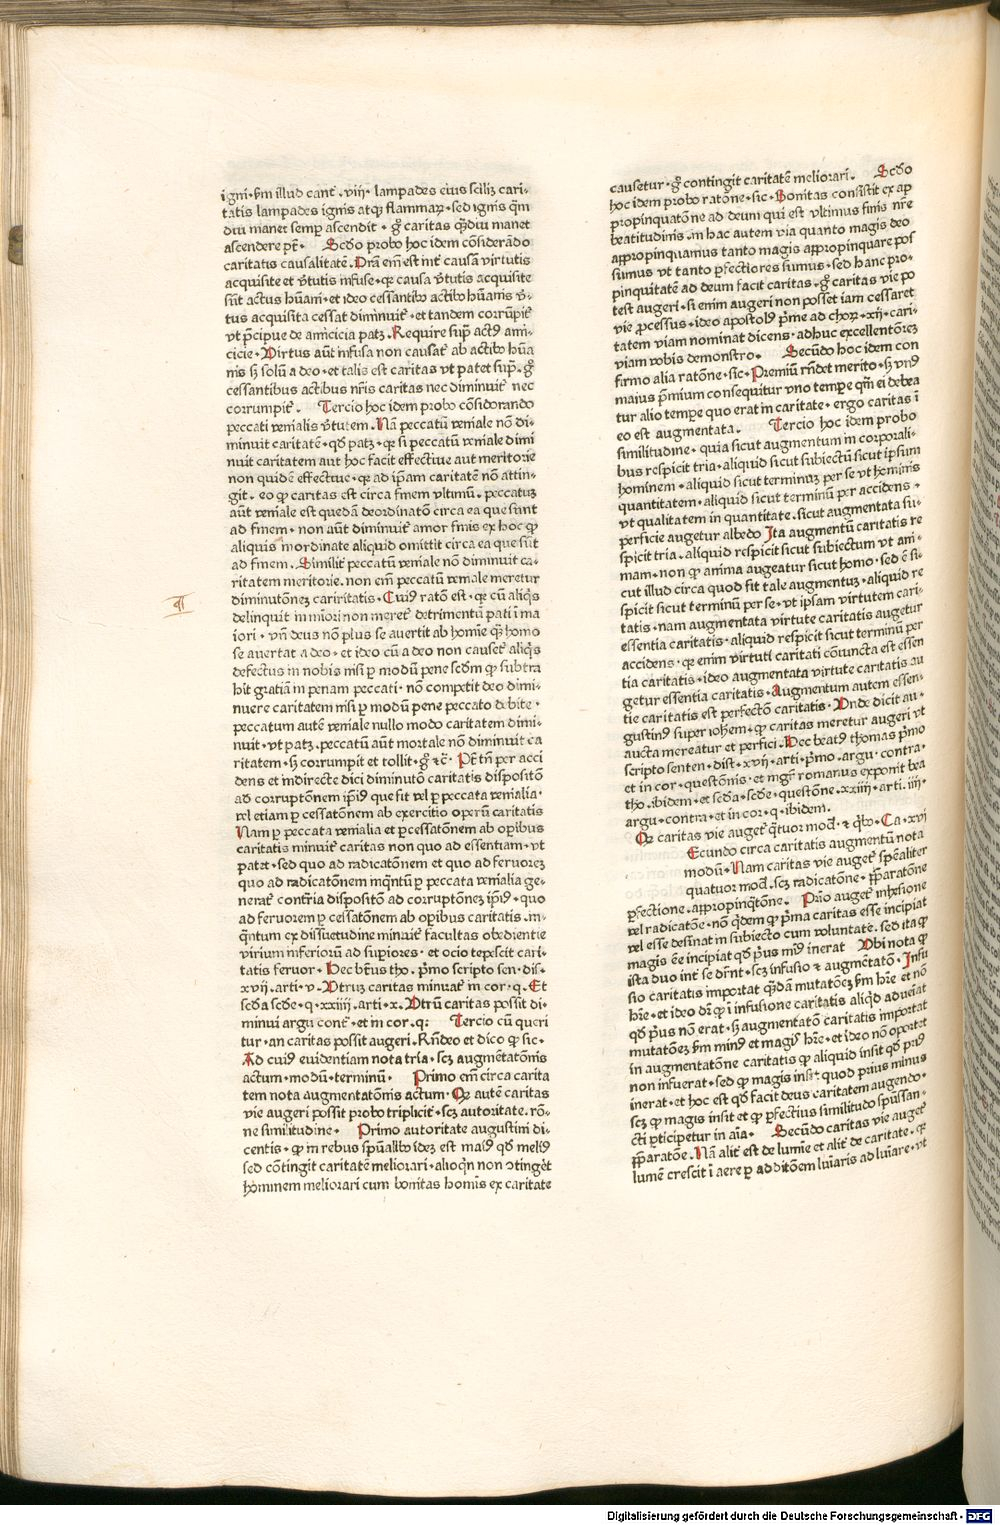 igni·ẜm illud cant̉·viij·lampades eius sciliꝫ cari-
tatis lampades ignis atqꝫ flammaꝝ·sed ignis q̄m
diu manet semp̱ ascendit·gͦ caritas q̄mdiu manet
ascendere pt̄· Scd̓o probo hoc idem cōsiderādo
caritatis causalitatē. Drā em̄ est int̉ causā virtutis
acquisite et v̓tutis infuse·qꝛ causa v̓tutis acquisite
sūt actus hūani·et ideo cessantibꝰ actibꝰ hūanis v̓-
tus acquisita cessat diminuit̉·et tandem corrūpit̉
vt p̄cipue de amicicia patꝫ. Require sup̱ actū ami-
cicie·Virtus aūt infusa non causat̉ ab actibꝰ hūa
nis ſꝫ solū a deo·et talis est caritas vt patet sup̱·gͦ
cessantibus actibus nr̄is caritas nec diminuit̉ nec
corrumpit̉· Tercio hoc idem probo cōsidorando
peccati venialis v̓tutem. Nā peccatū veniale nō di-
minuit caritatē·qd̓ patꝫ·qꝛ si peccatū veniale dimi
nuit caritatem aut hoc facit effectiue aut meritorie
non quidē effectiue·qꝛ ad ip̄am caritatē nō attin-
git·eo ꝙ caritas est circa finem vltimū·peccatuꝫ
aūt veniale est quedā deordinatō circa ea que sunt
ad finem·non aūt diminuit̉ amor finis ex hoc ꝙ
aliquis inordinate aliquid omittit circa ea que sūt
ad finem. Similit̉ peccatū veniale nō diminuit ca-
ritatem meritorie. non em̄ peccatū veniale meretur
diminutōneꝫ cariritatis·Cuiꝰ ratō est·qꝛ cū aliqͥs
delinquit in miori non meret̉ detrimentū pati ī ma
iori·vn̄ deus nō plus se auertit ab homīe qͣꝫ homo
se auertat a deo·et ideo cū a deo non causet̉ aliqͥs
defectus in nobis nisi ꝑ modū pene scd̓m ꝙ subtra
hit gratiā in penam peccati·nō competit deo dimi-
nuere caritatem nisi ꝑ modū pene peccato debite·
peccatum autē veniale nullo modo caritatem dimi-
nuit·vt patꝫ. peccatū aūt mortale nō diminuit ca
ritatem·ſꝫ corrumpit et tollit·gͦ ⁊c̄· Pt̄ tn̄ per acci
dens et indirecte dici diminutō caritatis dispositō
ad corruptōnem ip̄iꝰ que fit vel ꝑ peccata venialia·
vel etiam ꝑ cessatōnem ab exercitio operū caritatis
Nam ꝑ peccata venialia et ꝑ cessatōnem ab op̱ibus
caritatis minuit̉ caritas non quo ad essentiam·vt
patet·sed quo ad radicatōnem et quo ad feruoreꝫ
quo ad radicatōnem inq̄ntū ꝑ peccata venialia ge-
nerat̉ contr̄ia dispositō ad corruptōneꝫ ip̄iꝰ·quo
ad feruorem ꝑ cessatōnem ab op̱ibus caritatis·in-
q̄ntum ex dissuetudine minuit̉ facultas obedientie
virium inferiorū ad sup̱iores·et ocio tepescit cari-
tatis feruor·Hec bt̄us tho·p̄mo scripto sen·dis·
xvij·arti·v·Vtruꝫ caritas minuat̉ in cor·q·Et
scd̓a scd̓e·q·xxiiij·arti·x·Vtrū caritas possit di-
minui argu cont̉·et in cor·q: Tercio cū queri
tur·an caritas possit augeri·Rn̄deo et dico ꝙ sic·
Ad cuiꝰ euidentiam nota tria·scꝫ augmētatōnis
actum·modū·terminū· Primo em̄ circa carita
tem nota augmentatōnis actum·Qꝛ autē caritas
vie augeri possit probo triplicit̉·scꝫ autoritate·rō-
ne similitudine· Primo autoritate augustini di-
centis·ꝙ in rebus spūalibꝰ ideꝫ est maiꝰ qd̓ meliꝰ
sed cōtingit caritatē meliorari·alioqͥn non ↄtinget
hominem meliorari cum bonitas homīs ex caritate
causetur·gͦ contingit caritatē meliorari· Scd̓o
hoc idem probo ratōne·sic·Bonitas consistit ex ap
propinquatōne ad deum qui est vltimus finis nr̄e
beatitudinis·in hac autem via quanto magis deo
appropinquamus tanto magis appropinquare pos
sumus vt tanto ꝑfectiores sumus·sed hanc pro-
pinquitatē ad deum facit caritas·gͦ caritas vie po
test augeri·si enim augeri non posset iam cessaret
vie ꝓcessus·ideo apostolꝰ p̄me ad choꝝ·xij·cari-
tatem viam nominat dicens·adhuc excellentōreꝫ
viam vobis demonstro· Secūdo hoc idem con
firmo alia ratōne·sic·Premiū rn̄det merito·ſꝫ vnū
maius p̄mium consequitur vno temp̱e q̄m ei debea
tur alio temp̱e quo erat in caritate·ergo caritas ī
eo est augmentata. Tercio hoc idem probo
similitudine·quia sicut augmentum in corporali-
bus respicit tria·aliquid sicut subiectū sicut ipsum
hominem·aliquid sicut terminuꝫ per se vt hominis
quantitatem·aliquid sicut terminū per accidens·
vt qualitatem in quantitate·sicut augmentata su-
perficie augetur albedo Ita augmentū caritatis re
spicit tria·aliquid respicit sicut subiectum vt ani-
mam·non ꝙ anima augeatur sicut homo·sed ē si-
cut illud circa quod fit tale augmentuꝫ·aliquid re
spicit sicut terminū per se·vt ipsam virtutem cari-
tatis·nam augmentata virtute caritatis augetur
essentia caritatis·aliquid respicit sicut terminū per
accidens·qꝛ enim virtuti caritati cōiuncta est essen
tia caritatis·ideo augmentata virtute caritatis au
getur essentia caritatis·Augmentum autem essen-
tie caritatis est perfectō caritatis·Vnde dicit au-
gustinꝰ super iohem·ꝙ caritas meretur augeri vt
aucta mereatur et perfici·Hec beatꝰ thomas p̄mo
scripto senten·dist·xvij·arti·p̄mo·argu·contra·
et in cor·questōnis·et mgr̄ romanus exponit bea
tho·ibidem·et scd̓a·scd̓e·questōne·xxiiij·arti·iiij·
argu·contra·et in cor·q·ibidem.
Qꝛ caritas vie auget̉ qͣtuor modꝭ·⁊ qͥbꝰ·Ca·xvi
Ecundo circa caritatis augmentū nota
modū·Nam caritas vie auget̉ sp̄ealiter
quatuor modꝭ·scꝫ radicatōne·p̄paratōne
ꝑfectione·appropinqͣtōne. Prio auget̉ inhesione
vel radicatōne·nō qͥdem ꝙ p̄ma caritas esse incipiat
vel esse desinat in subiecto cum voluntate·sed ita ꝙ
magis eē incipiat qd̓ p̄us minꝰ inerat Vbi nota ꝙ
ista duo int̉ se dr̄nt·scꝫ infusio ⁊ augmētatō·Infu
sio caritatis importat qͣdā mutatōeꝫ ẜm hr̄e et nō
hr̄e·et ideo dr̄ ꝙ ī infusione caritatis aliqͥd adueniat
qd̓ p̄us nō erat·ſꝫ augmentatō caritatis importat
mutatōeꝫ ẜm minꝰ et magis hr̄e·et ideo nō oportet
in augmentatōne caritatis ꝙ aliquid insit qd̓ priꝰ
non infuerat·sed ꝙ magis insit quod prius minus
inerat·et hoc est qd̓ facit deus caritatem augendo·
scꝫ ꝙ magis insit et ꝙ ꝑfectius similitudo spūssan-
ct̄i ꝑticipetur in aīa· Secūdo caritas vie auget̉
p̄paratōe·Nā alit̉ est de lumīe et alit̉ de caritate·qꝛ
lumē crescit ī aere ꝑ additōem luīaris ad luīare·vt
Digitalisierung gefördert durch die Deutsche Forschungsgemeinschaft - DFG